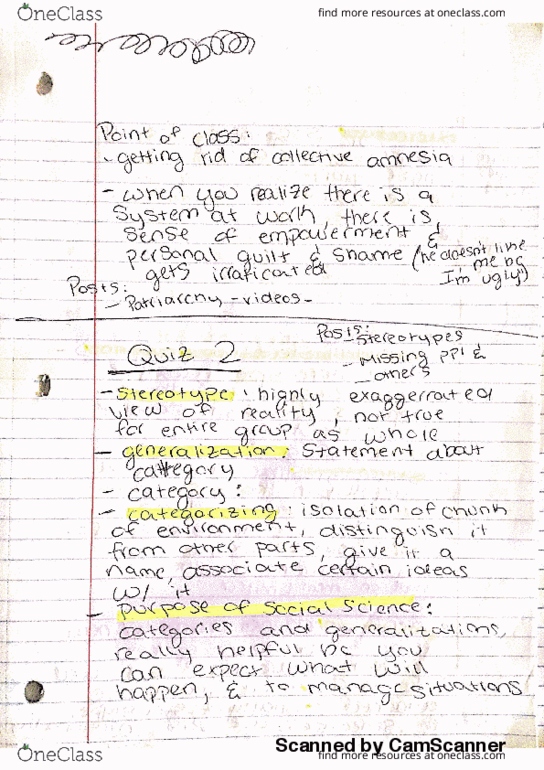 OneClass
find more resources at oneclass.com
Point of class:
- getting rid of collective amnesia
- when you realize there is a
system at work, there is
sense of empowerment &
personal guilt & shame (he doesn't like
me bc
I'm ugly)
gets irraficated
Posts:
- Patriarchy - videos -
Posts:
Stereotypes
- Missing ppl &
- others
Quiz 2
- Stereotype: highly exaggerated
view of reality, not true
for entire group as whole
- generalization: Statement about
category
- category:
- categorizing: isolation of chunk
of environment, distinguish it
from other parts, give it a
name, associate certain ideas
w/ it
- purpose of Social Science:
categories and generalizations
really helpful bc you
can expect what will
happen, & to manage situations
Scanned by CamScanner
OneClass
find more resources at oneclass.com